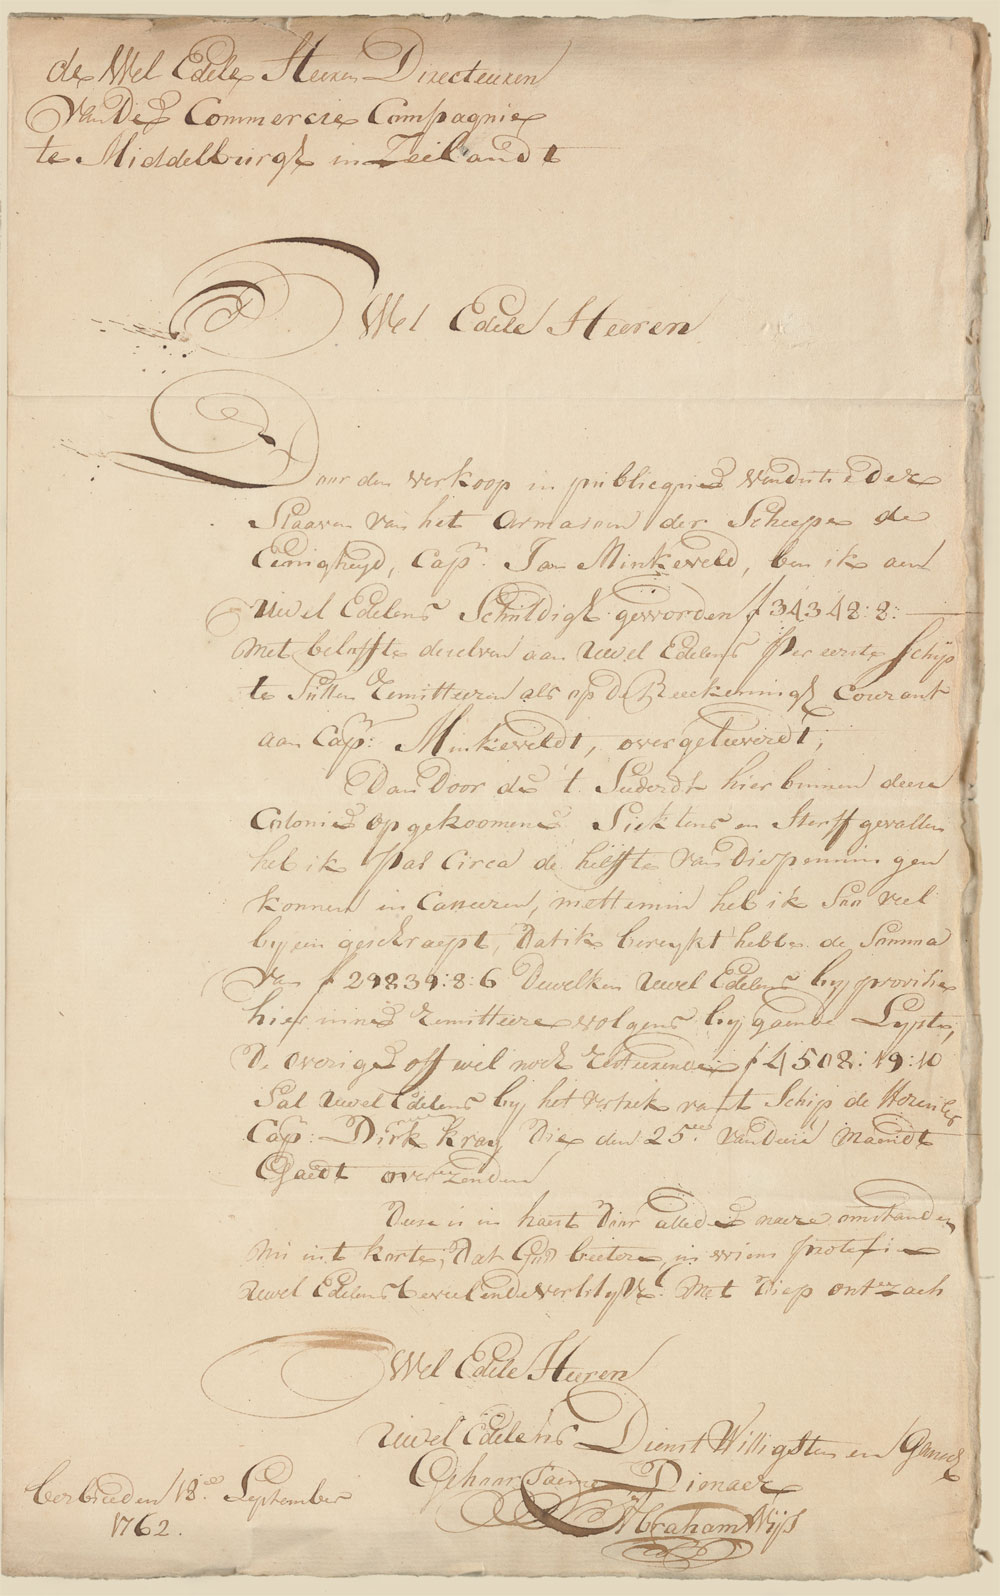 de Wel Edele Heeren Directeuren
Van De Commercie Compagnie
te Middelburgh in Zeelandt
Wel Edele Heeren
Door den verkoop in publicque vendutie der
Slaaven van het Armasoen der Scheepe de
Eenigheyd, Capn. Jan Minkeveld, ben ik aen
Uwel Edelens Schuldigh geworden f 34348:8:
Met belofte deselven aan Uwel Edelens Per eerste Schip
te Sullen Remitteeren als op De Reekeningh Courant
aan Capn: Minkeveldt, overgeleverdt;
Dan Door de 't Sederdt hier binnen deese
Colonie opgekoomene Siektens en Sterfgevallen
heb ik Pas Circa de helfte van die penningen
konnen in Casseeren, mettemin heb ik Soo veel
byeen geschraept, Dat ik bereykt hebbe de Somma
van f 29839:8:6 Dewelken Uwel Edelens by provisie
hier inne Remitteere volgens bygaende Lyste,
De overige off wel noch Resteerende f 4508:19:10
Sal Uwel Edelens by het vertrek van't Schip de
Cap: Dirk Kray Die den 25en van Deese Maendt
Gaedt overzenden
Deese is in haest Door alle de naere omstanden
in't korte, Dat God beetere, in wiens protexie
Uwel Edelens beveelende verblyve. Met Diep ontzach
Wel Edele Heeren
Uwel Edelens Dienst Willigsten en Gansch
Gehoorsaeme Dienaer
Abraham Wijs
berbice den 18en September
1762.